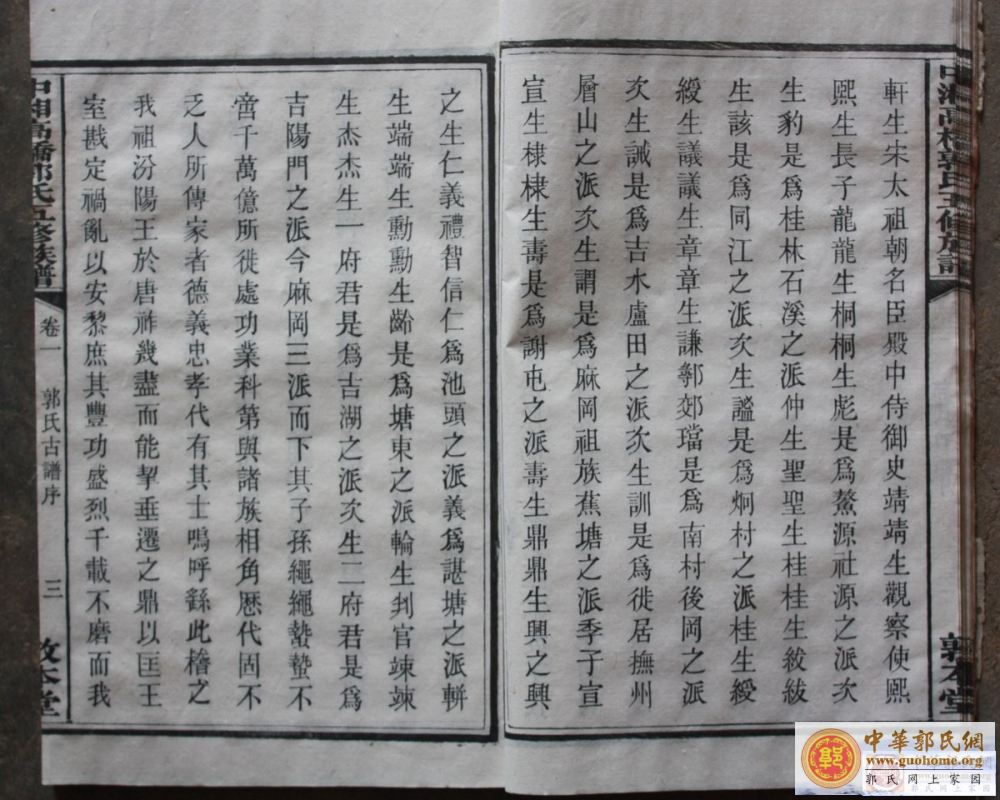 中湘高橋郭氏五修族譜
敦本堂
軒生宋太祖朝名臣殿中侍御史靖靖生觀察使熙
熙生長子龍龍生桐桐生彪是爲鰲源社源之派次
生豹是爲桂林石溪之派仲生聖聖生桂桂生紱紱
生該是爲同江之派次生謐是爲炯村之派桂生綬
綬生議議生章章生謙鄣郊璫是爲南村後岡之派
次生誠是爲吉木盧田之派次生訓是爲徙居撫州
層山之派次生謂是爲麻岡祖族蕉塘之派季子宣
宣生棣棣生壽是爲謝屯之派壽生鼎鼎生興之興
之生仁義禮智信仁爲池頭之派義爲諶塘之派輧
生端端生勳勳生齡是爲塘東之派輪生刲官竦竦
生杰杰生一府君是爲吉湖之派次生二府君是爲
吉陽門之派今麻岡三派而下其子孫繩繩蟄蟄不
啻千萬億所徙處功業科第與諸族相角歷代固不
乏人所傳家者德義忠孝代有其士嗚呼繇此稽之
我祖汾陽王於唐祚幾盡而能挈垂遷之鼎以匡王
室戡定禍亂以安黎庶其豐功盛烈千載不磨而我
中湘高橋郭氏五修族譜
卷一
郭氏古譜序
三
敦本堂
中華郭氏網
www.guohome.org
郭氏网上家园